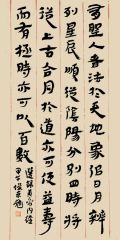 賢人者法於天地象似日月辨
列星辰順從陰陽分別四時將
從上古合同於道亦可使益壽
而有極時亦可以百數
選錄黃帝內經
甲午